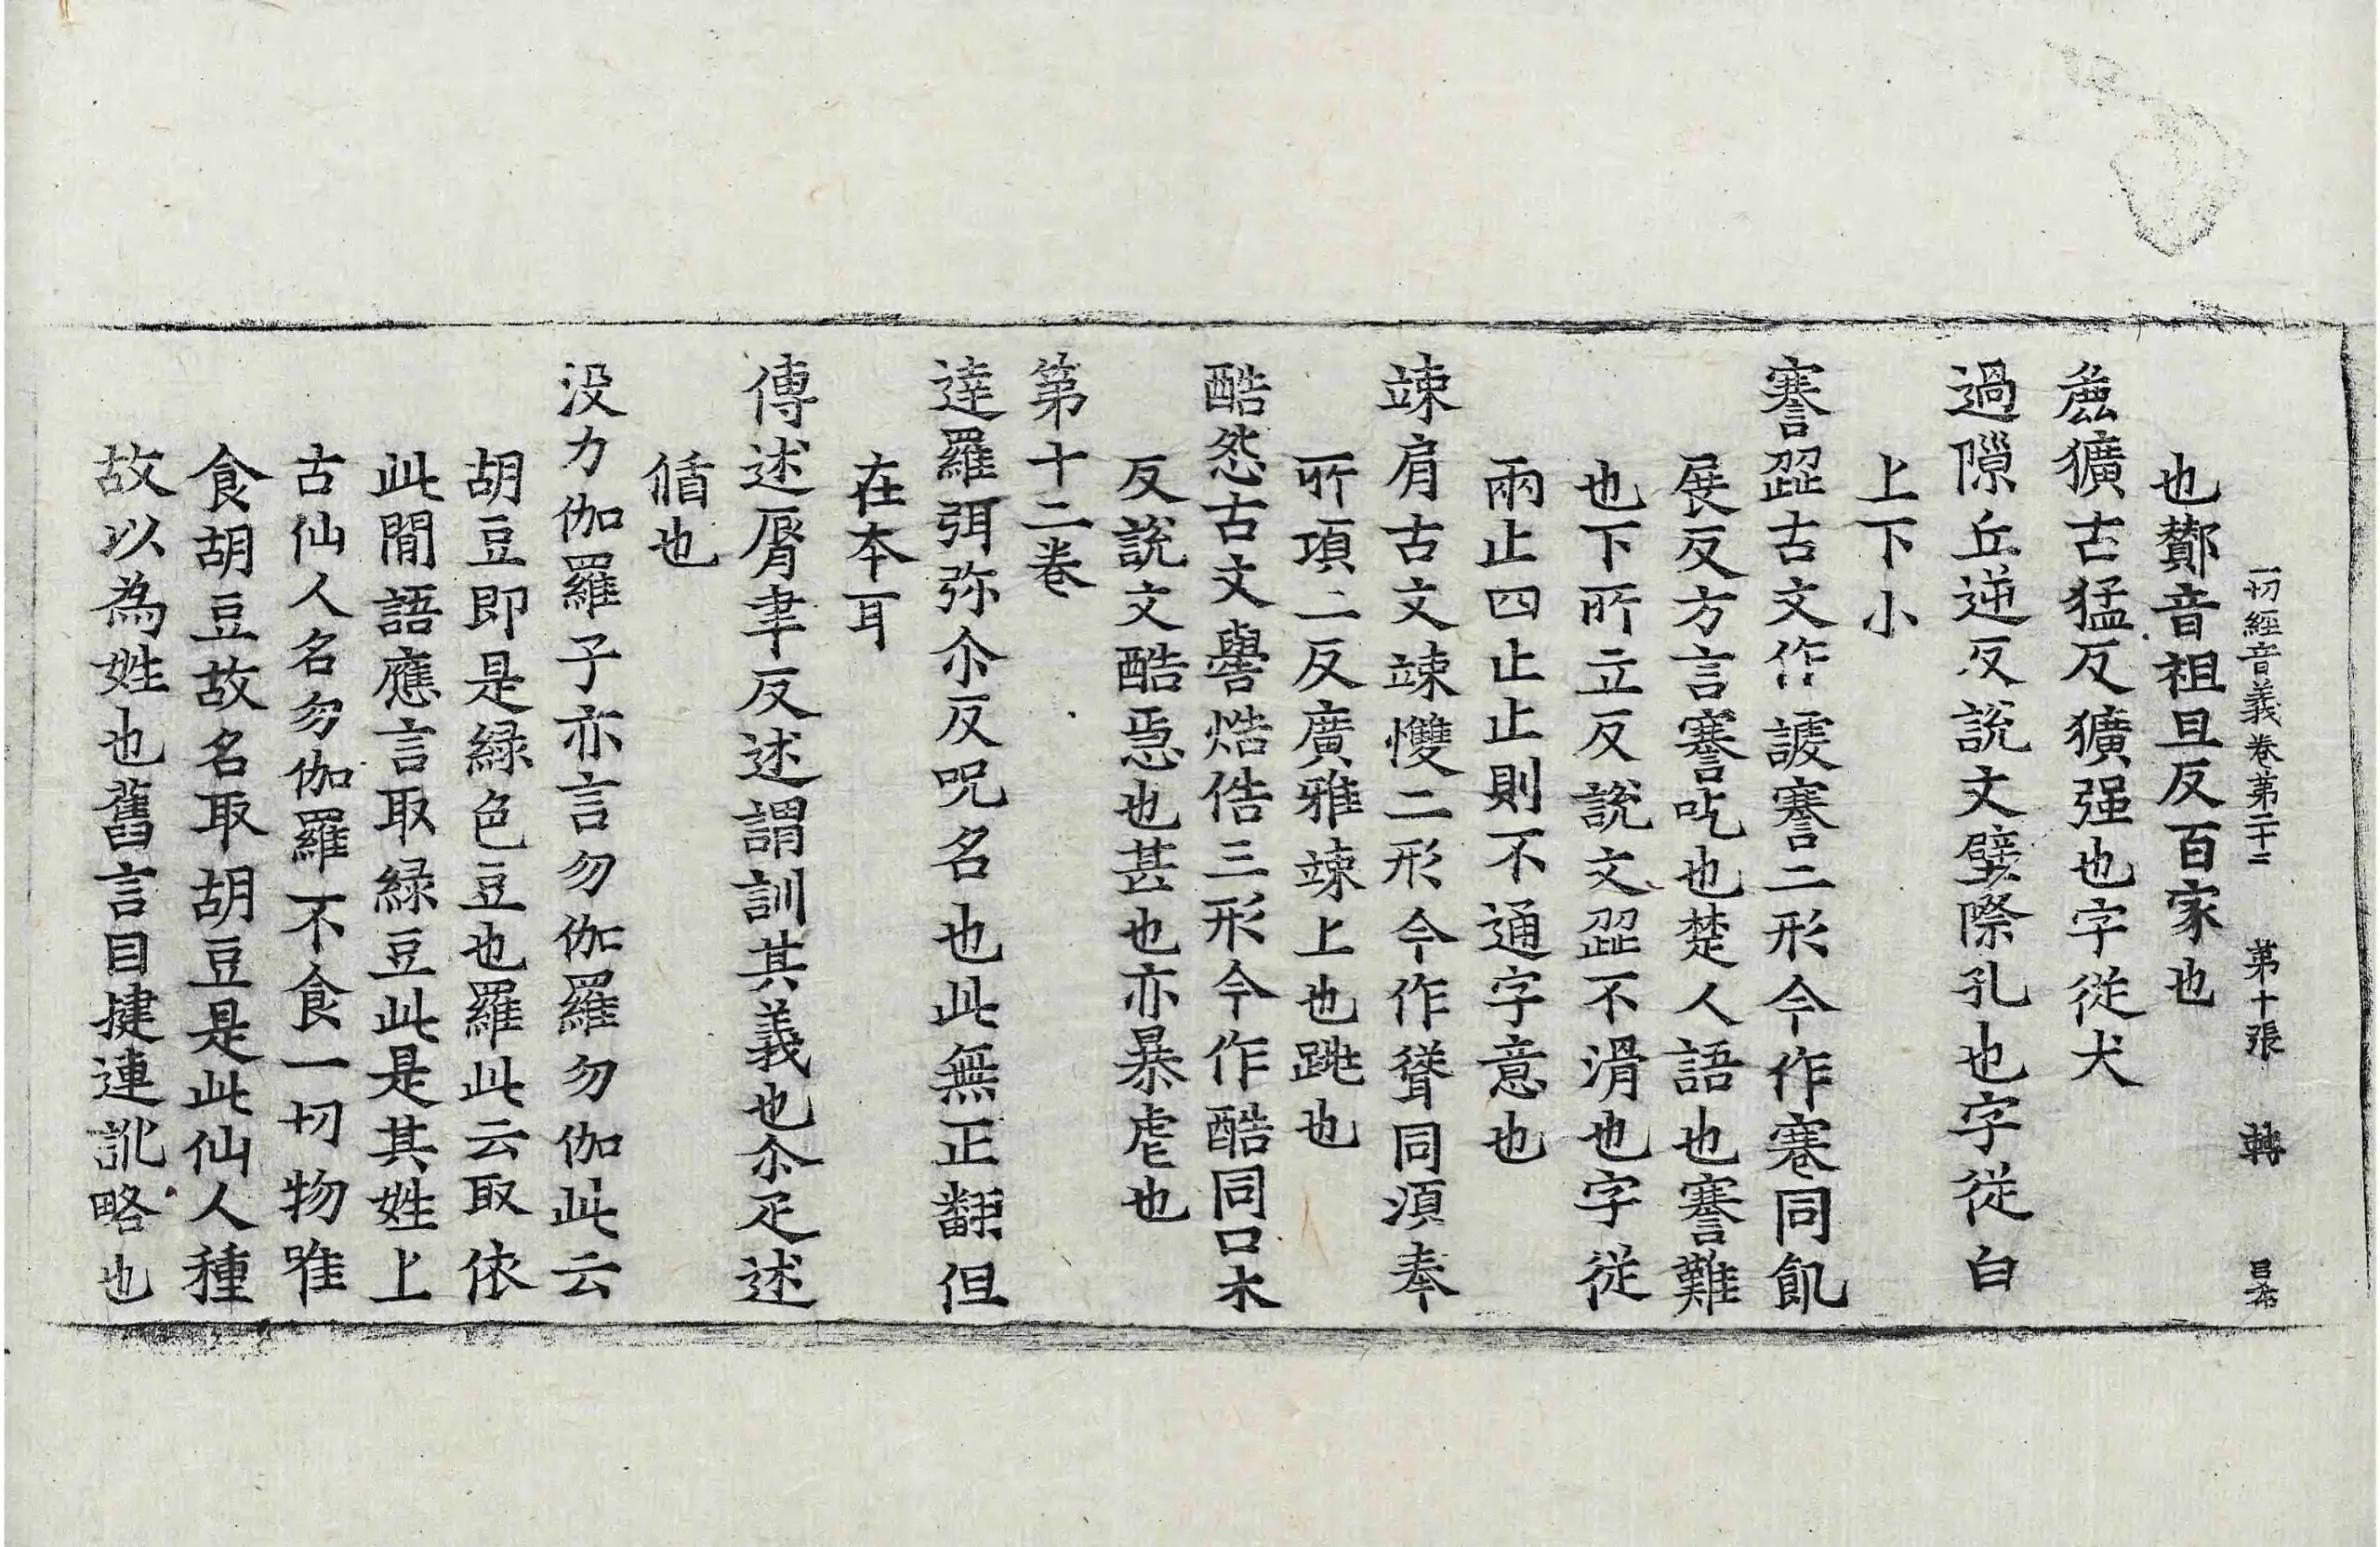 一切經音義卷第二十二　第十張　轉　昌布
也酇音祖旦反百家也
麁獷古猛反獷强也字從犬
過隙丘逆反說文壁際孔也字從白
上下小
謇澀古文作謇二形今作蹇同飢
展反方言謇吃也楚人語也謇難
也下所立反說文澀不滑也字從
兩止四止止則不通字意也
竦肩古文竦㦼二形今作聳同湏奉
所項二反廣雅竦上也跳也
酷怨古文嚳焅俈三形今作酷同口木
反說文酷急也甚也亦暴虐也
第十二卷
達羅弭弥尒反呪名也此無正翻但
在本耳
傳述脣聿反述謂訓其義也尒疋述
循也
没力伽羅子亦言勿伽羅勿伽此云
胡豆即是緑色豆也羅此云取依
此間語應言取緑豆此是其姓上
古仙人名勿伽羅不食一切物唯
食胡豆故名取胡豆是此仙人種
故以為姓也舊言目揵連訛略也